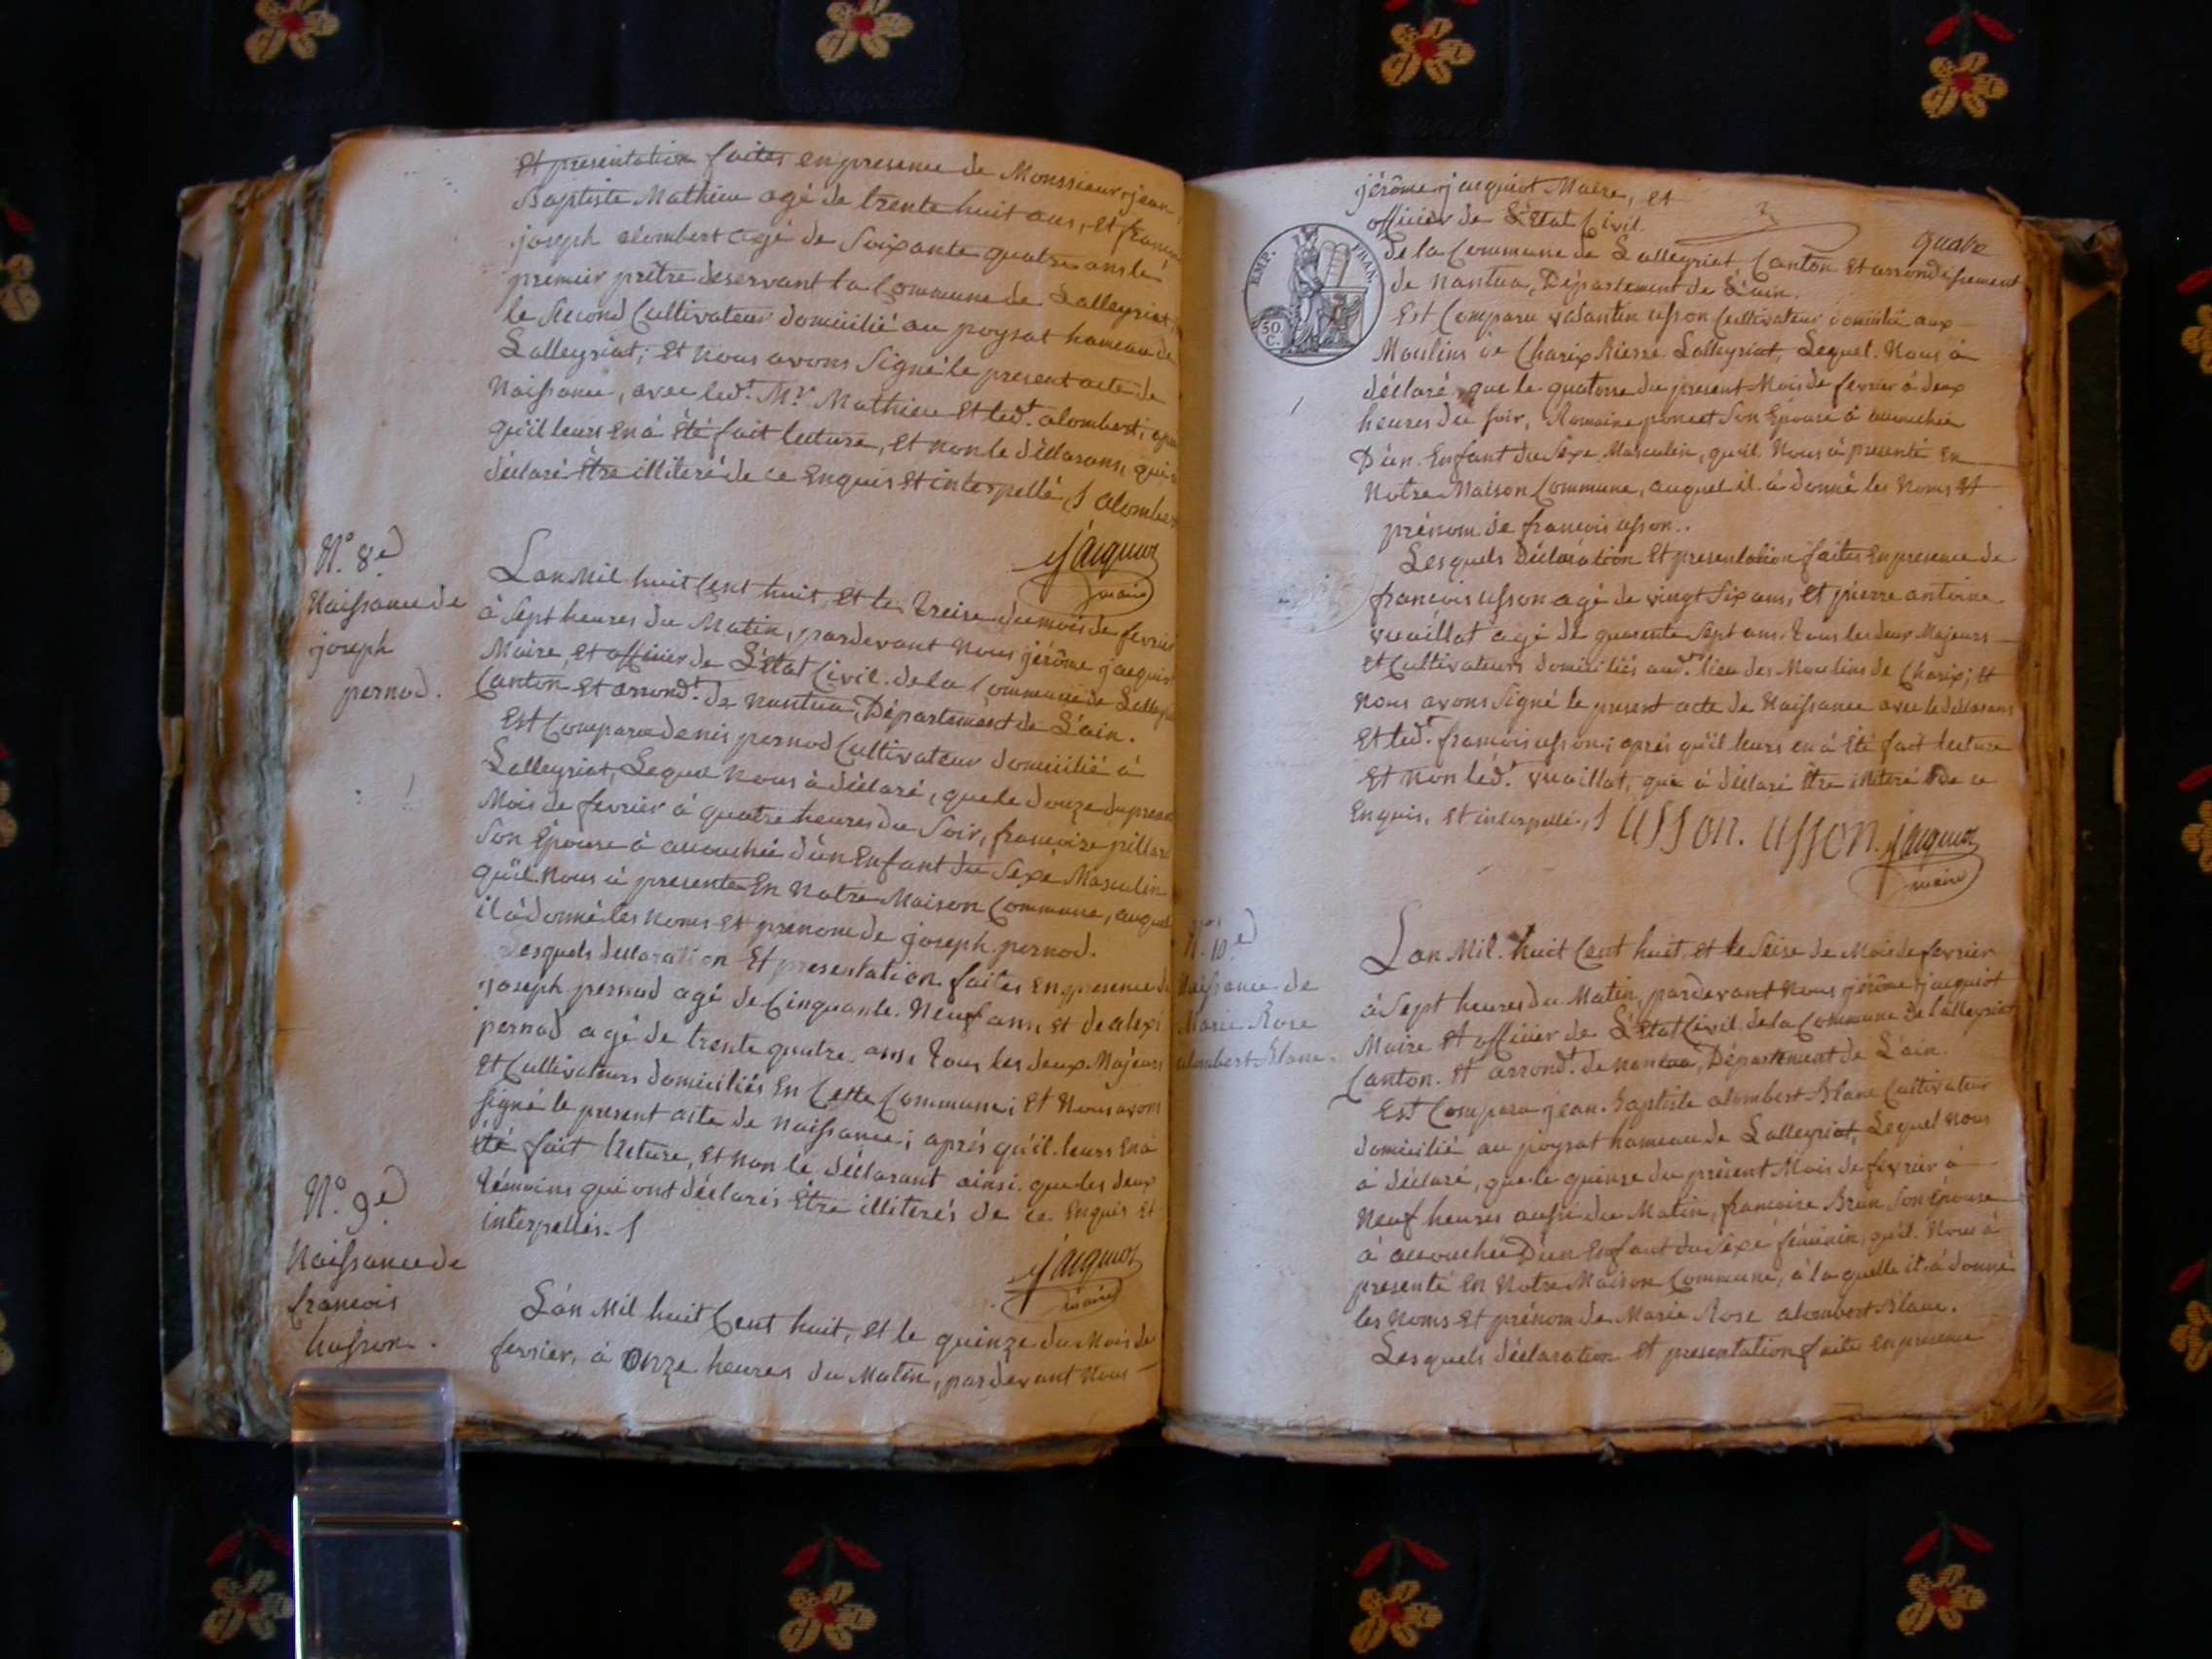 Et presentation faites en presence de Monssieur jean
Baptiste Mathieu agé de trente huit ans, et francois
joseph alombert agé de Soixante quatre ans le
premier prêtre deservant la Commune de Lalleyriat,
le Second Cultivateur domicilié au poysat hameau de
Lalleyriat; Et Nous avons Signé le present acte de
Naissance, avec led.t M.r Mathieu Et led.t alombert, apres
qu'il leurs En à Eté fait lecture, et non le déclarans, qui à
déclaré Être illiteré de ce Enquis Et interpellé, alombert
jacquiot
maire
N.o 8.e
Naissance de
joseph
pernod.
Lan Mil huit Cent huit, et le treise du mois de fevrier
à Sept heures du Matin, pardevant Nous jérôme jacquiot
Maire, et officier de L'Etat Civil de la Commune de Lalleyriat
Canton Et arrond.t de Nantua, Département de L'ain.
Est Comparu denis pernod Cultivateur domicilié à
Lalleyriat, Lequel Nous à déclaré, que le douze du present
Mois de fevrier à quatre heures du Soir, francoise pillard
Son Epouse à accouchée d'un Enfant du Sexe Masculin
qu'il Nous à presenté En Notre Maison Commune, auquel
il à donné les Noms Et prenom de joseph pernod.
Lesquels declaration Et presentation faites En presence de
joseph pernod agé de Cinquante Neuf ans, et de alexi
pernod agé de trente quatre ans, tous les deux Majeurs
Et Cultivateurs domiciliés En Cette Commune; Et Nous avons
Signé le present acte de Naissance; aprés qu'il leurs En à
été fait lecture, Et non le déclarant ainsi que les deux
témoins qui ont déclarés Être illiterés de ce Enquis Et
interpellés.
jacquiot
maire
N.o 9.e
Naissance de
francois
husson.
L'an Mil huit Cent huit, Et le quinze du Mois de
fevrier, à Onze heures du Matin, pardevant Nous
jérôme jacquiot Maire, et
officier de L'Etat Civil
quatre
EMP. FRAN.
50. C.
De la Commune de Lalleyriat Canton Et arrondissement
de Nantua, Département de L'ain.
Est Comparu valantin usson Cultivateur domicilié aux
Moulins de Charix Rierre Lalleyriat, Lequel Nous à
déclaré, que le quatorse du present Mois de fevrier à deux
heures du soir, Romaine poncet Son Epouse à accouchée
D'un Enfant du Sexe Masculin, qu'il Nous à presenté En
Notre Maison Commune, auquel il à donné les Noms Et
prénom de francois usson..
Lesquels Déclaration Et presentation faites En presence de
francois usson agé de vingt Six ans, Et pierre antoine
vuaillat agé de quarente Sept ans, tous les deux Majeurs
Et Cultivateurs domiciliés aud.t lieu des Moulins de Charix; Et
Nous avons Signé le present acte de Naissance avec le déclarans
Et led.t francois usson; aprés qu'il leurs en à Eté fait lecture
Et Non léd.t vuaillat, que à déclaré Être illiteré de ce
Enquis, et interpellé. usson. usson. jacquiot
maire
N.o 10.e
Naissance de
Marie Rose
alombert Blanc.
Lan Mil huit Cent huit, et le Seise de Mois de fevrier
à Sept heures du Matin, pardevant Nous jérôme jacquiot
Maire Et officier de L'Etat Civil de la Commune De Lalleyriat
Canton Et arrond.t de Nantua, Département de L'ain.
Est Comparu jean Baptiste alombert Blanc Cultivateur
domicilié au poysat hameau de Lalleyriat, Lequel Nous
à déclaré, que le quinse du présent Mois de fevrier à
Neuf heures aussi du Matin, francoise Brun Son épouse
à accouchée D'un Enfant du Sexe féminin, qu'il Nous à
presenté En Notre Maison Commune, à la quelle il à donné
les Noms Et prénom de Marie Rose alombert Blanc.
Lesquels déclaration Et presentation faite en presence